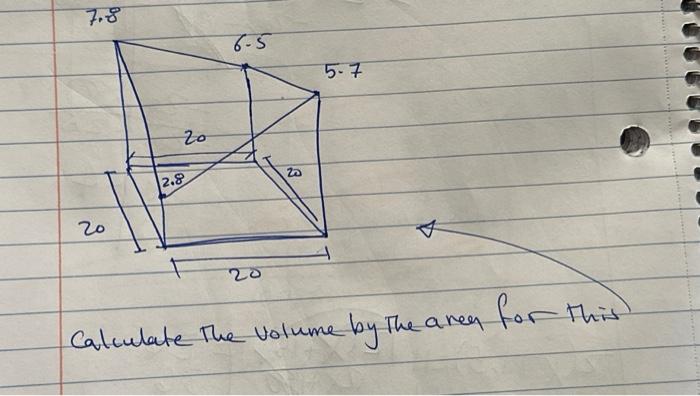 7.8
6.5
5.7
20
2.8
20
20
20
Calculate The volume by The area for this